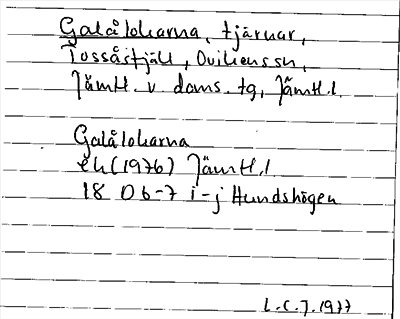 Galålokarna, tjärnar,
Tossåsfjäll, Ovikens sn,
Jämtl. v. doms. tg, Jämtl. l.
Galålokarna
ek (1976) Jämtl. l
18 D 6-7 i-j Hundshögen
L.C.J. 1977